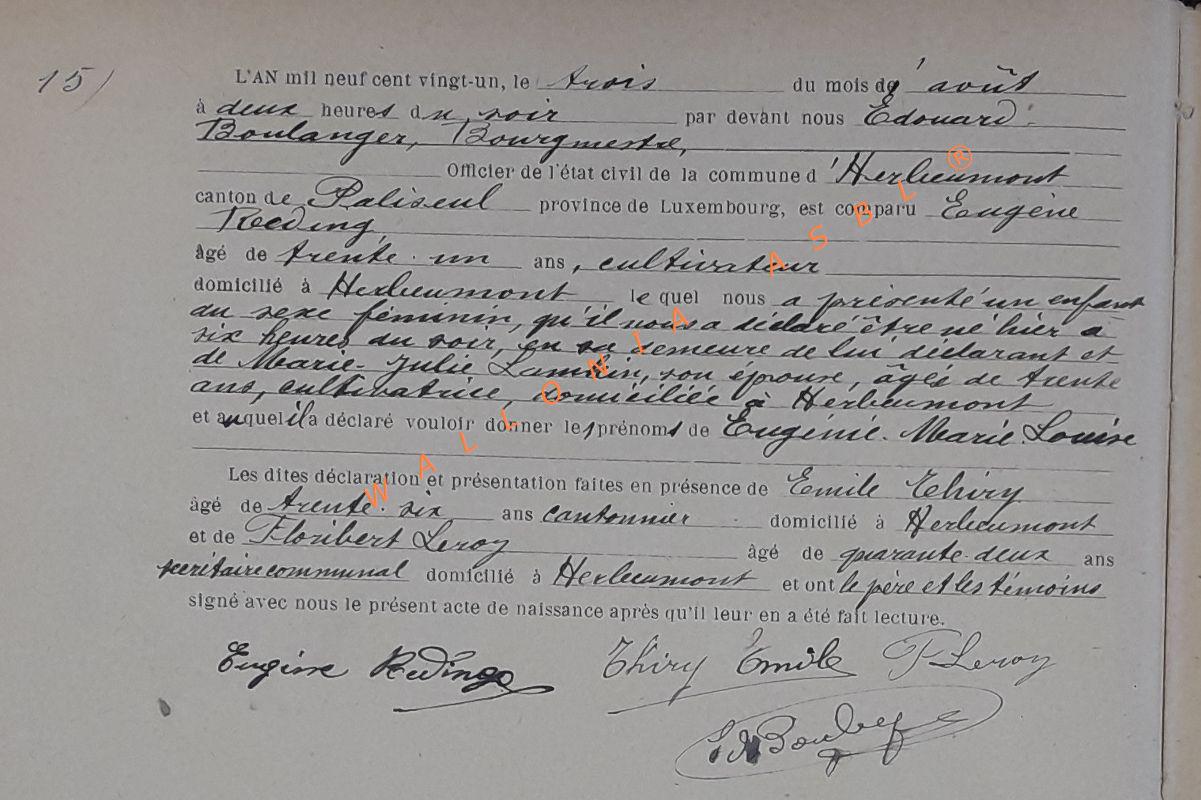 15)
L'AN mil neuf cent vingt-un, le trois du mois d' août
à deux heures du soir par devant nous Edouard
Boulanger, Bourgmestre,
Officier de l'état civil de la commune d'Herbeumont
canton de Paliseul province de Luxembourg, est comparu Eugène
Reding,
âgé de trente-un ans, cultivateur
domicilié à Herbeumont lequel nous a présenté un enfant
du sexe féminin, qu'il nous a déclaré être né hier à
six heures du soir, en sa demeure de lui déclarant et
de Marie-Julie, son épouse, âgée de trente
ans, cultivatrice, domiciliée à Herbeumont
et auquel il a déclaré vouloir donner les prénoms de Eugénie-Marie-Louise
Les dites déclaration et présentation faites en présence de Emile Thiry
âgé de trente-six ans cantonnier domicilié à Herbeumont
et de Floribert Leroy âgé de quarante-deux ans
secrétaire communal domicilié à Herbeumont et ont le père et les témoins
signé avec nous le présent acte de naissance après qu'il leur en a été fait lecture.
Eugène Reding Thiry Emile F Leroy
WALLONIA ASBL ®